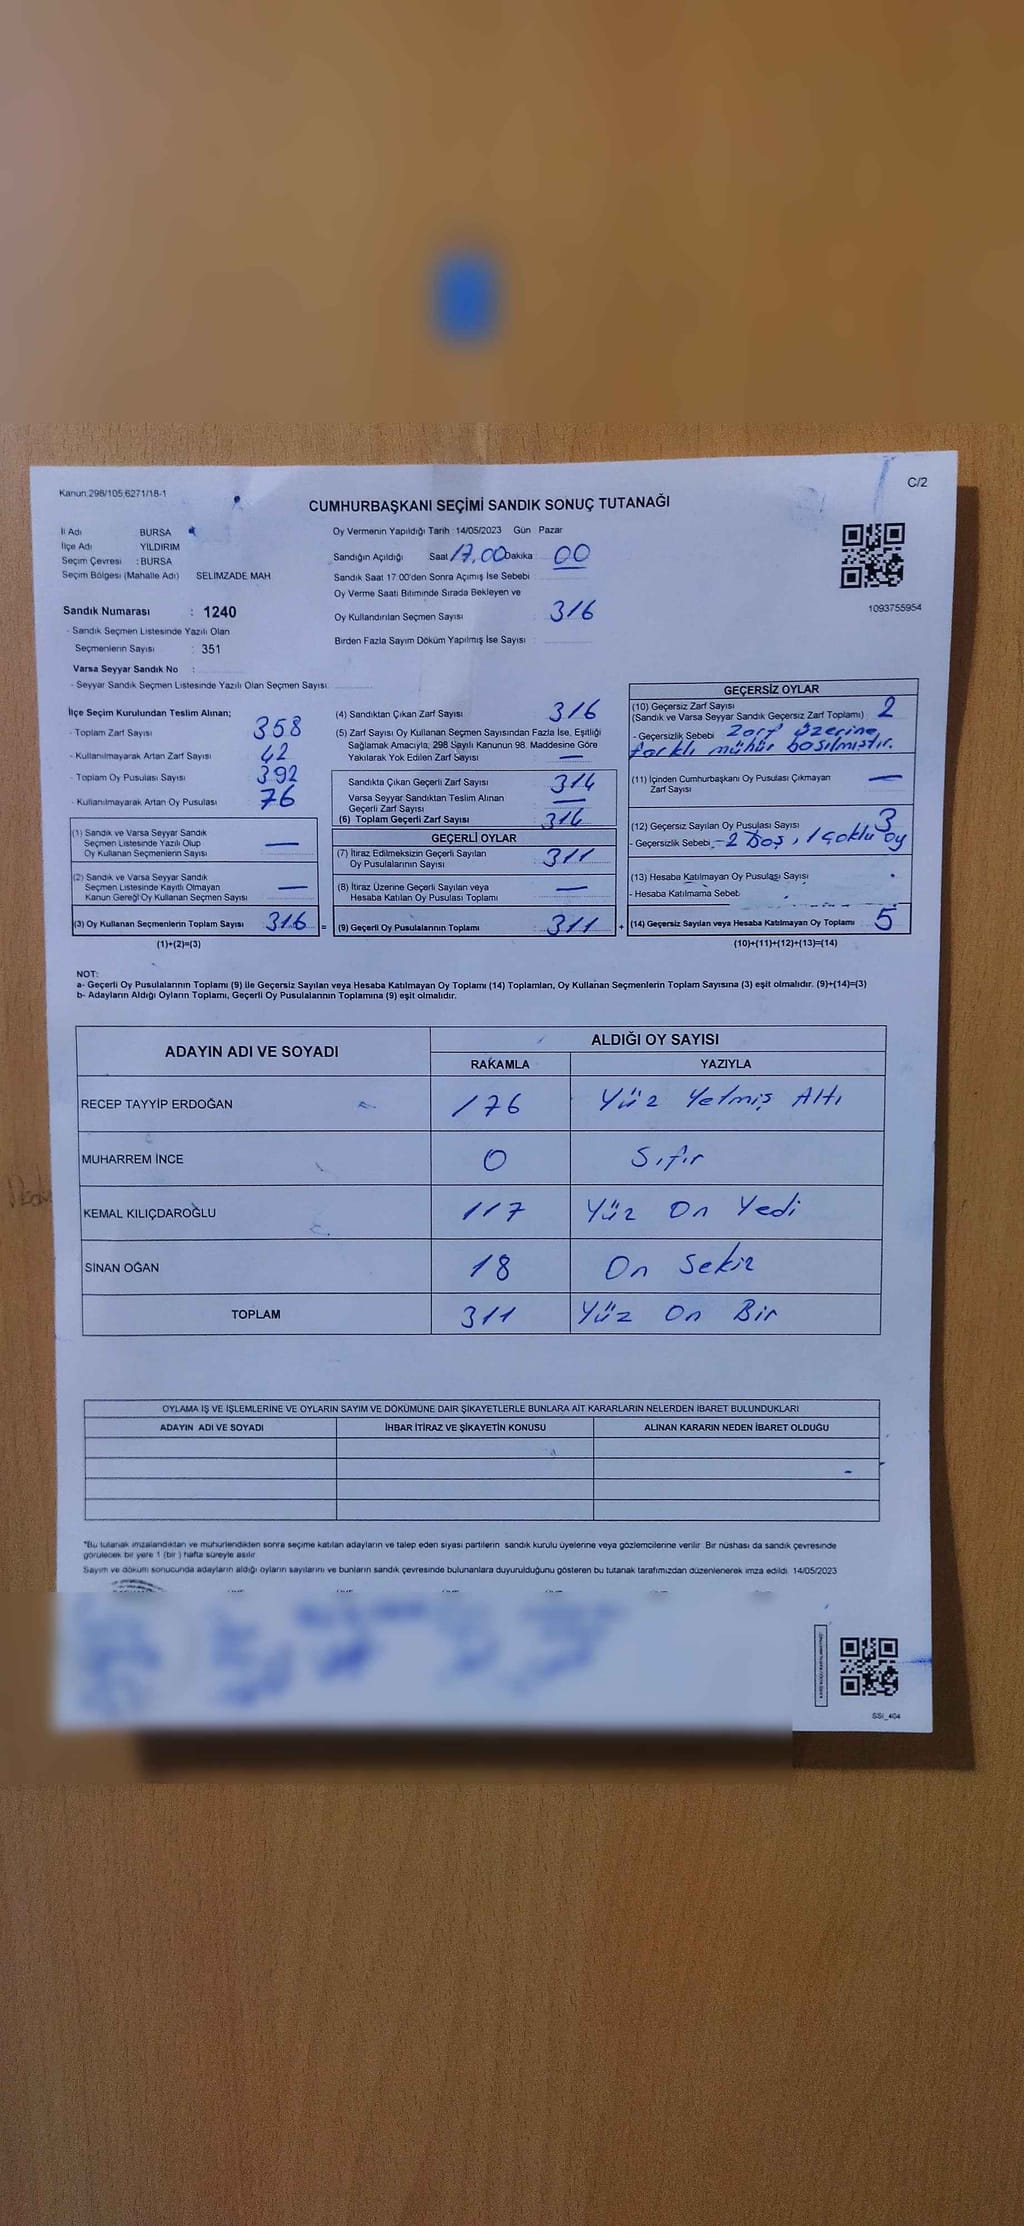 Kanun:298/105,6271/18-1
C/2
CUMHURBAŞKANI SEÇİMİ SANDIK SONUÇ TUTANAĞI
İl Adı BURSA
İlçe Adı YILDIRIM
Seçim Çevresi : BURSA
Seçim Bölgesi (Mahalle Adı) SELIMZADE MAH
Sandık Numarası : 1240
- Sandık Seçmen Listesinde Yazılı Olan
Seçmenlerin Sayısı : 351
Varsa Seyyar Sandık No :
- Seyyar Sandık Seçmen Listesinde Yazılı Olan Seçmen Sayısı
Oy Vermenin Yapıldığı Tarih 14/05/2023 Gün Pazar
Sandığın Açıldığı Saat 17.00 Dakika 00
Sandık Saat 17:00'den Sonra Açımış İse Sebebi
Oy Verme Saati Bitiminde Sırada Bekleyen ve
Oy Kullandırılan Seçmen Sayısı 316
Birden Fazla Sayım Döküm Yapılmış İse Sayısı
1093755954
İlçe Seçim Kurulundan Teslim Alınan;
- Toplam Zarf Sayısı 358
- Kullanılmayarak Artan Zarf Sayısı 42
- Toplam Oy Pusulası Sayısı 392
- Kullanılmayarak Artan Oy Pusulası 76
(1) Sandık ve Varsa Seyyar Sandık
Seçmen Listesinde Yazılı Olup
Oy Kullanan Seçmenlerin Sayısı —
(2) Sandık ve Varsa Seyyar Sandık
Seçmen Listesinde Kayıtlı Olmayan
Kanun Gereği Oy Kullanan Seçmen Sayısı —
(3) Oy Kullanan Seçmenlerin Toplam Sayısı 316 =
(1)+(2)=(3)
(4) Sandıktan Çıkan Zarf Sayısı 316
(5) Zarf Sayısı Oy Kullanan Seçmen Sayısından Fazla İse, Eşitliği
Sağlamak Amacıyla, 298 Sayılı Kanunun 98. Maddesine Göre
Yakılarak Yok Edilen Zarf Sayısı —
Sandıkta Çıkan Geçerli Zarf Sayısı 314
Varsa Seyyar Sandıktan Teslim Alınan
Geçerli Zarf Sayısı —
(6) Toplam Geçerli Zarf Sayısı 314
GEÇERLİ OYLAR
(7) İtiraz Edilmeksizin Geçerli Sayılan
Oy Pusulalarının Sayısı 311
(8) İtiraz Üzerine Geçerli Sayılan veya
Hesaba Katılan Oy Pusulası Toplamı —
(9) Geçerli Oy Pusulalarının Toplamı 311 +
GEÇERSİZ OYLAR
(10) Geçersiz Zarf Sayısı 2
(Sandık ve Varsa Seyyar Sandık Geçersiz Zarf Toplamı)
- Geçersizlik Sebebi Zarf üzerine
farklı mühür basılmıştır.
(11) İçinden Cumhurbaşkanı Oy Pusulası Çıkmayan
Zarf Sayısı —
(12) Geçersiz Sayılan Oy Pusulası Sayısı 3
- Geçersizlik Sebebi - 2 Boş, 1 Çoklu oy
(13) Hesaba Katılmayan Oy Pusulası Sayısı
- Hesaba Katılmama Sebebi
(14) Geçersiz Sayılan veya Hesaba Katılmayan Oy Toplamı 5
(10)+(11)+(12)+(13)=(14)
NOT:
a- Geçerli Oy Pusulalarının Toplamı (9) ile Geçersiz Sayılan veya Hesaba Katılmayan Oy Toplamı (14) Toplamları, Oy Kullanan Seçmenlerin Toplam Sayısına (3) eşit olmalıdır. (9)+(14)=(3)
b- Adayların Aldığı Oyların Toplamı, Geçerli Oy Pusulalarının Toplamına (9) eşit olmalıdır.
ADAYIN ADI VE SOYADI ALDIĞI OY SAYISI
RAKAMLA YAZIYLA
RECEP TAYYİP ERDOĞAN 176 Yüz Yetmiş Altı
MUHARREM İNCE 0 Sıfır
KEMAL KILIÇDAROĞLU 117 Yüz On Yedi
SİNAN OĞAN 18 On Sekiz
TOPLAM 311 Yüz On Bir
OYLAMA İŞ VE İŞLEMLERİNE VE OYLARIN SAYIM VE DÖKÜMÜNE DAİR ŞİKAYETLERLE BUNLARA AİT KARARLARIN NELERDEN İBARET BULUNDUKLARI
ADAYIN ADI VE SOYADI İHBAR İTİRAZ VE ŞİKAYETİN KONUSU ALINAN KARARIN NEDEN İBARET OLDUĞU
*Bu tutanak imzalandıktan ve mühürlendikten sonra seçime katılan adayların ve talep eden siyasi partilerin sandık kurulu üyelerine veya gözlemcilerine verilir. Bir nüshası da sandık çevresinde
görülecek bir yere 1 (bir) hafta süreyle asılır
Sayım ve döküm sonucunda adayların aldığı oyların sayılarını ve bunların sandık çevresinde bulunanlara duyurulduğunu gösteren bu tutanak tarafımızdan düzenlenerek imza edildi. 14/05/2023
SSI_404